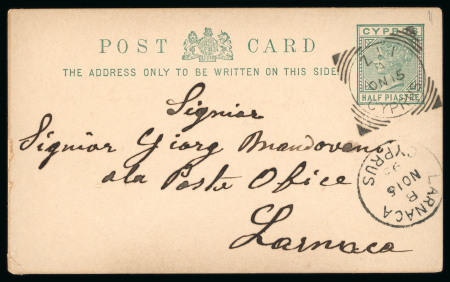 POST CARD
THE ADDRESS ONLY TO BE WRITTEN ON THIS SIDE
CYPRUS
HALF PIASTRE
CYPRUS
Signior
Signior Giorg Mandoveno
ala Poste Ofice
Larnaca
LARNACA
B
NO 15
CYPRUS